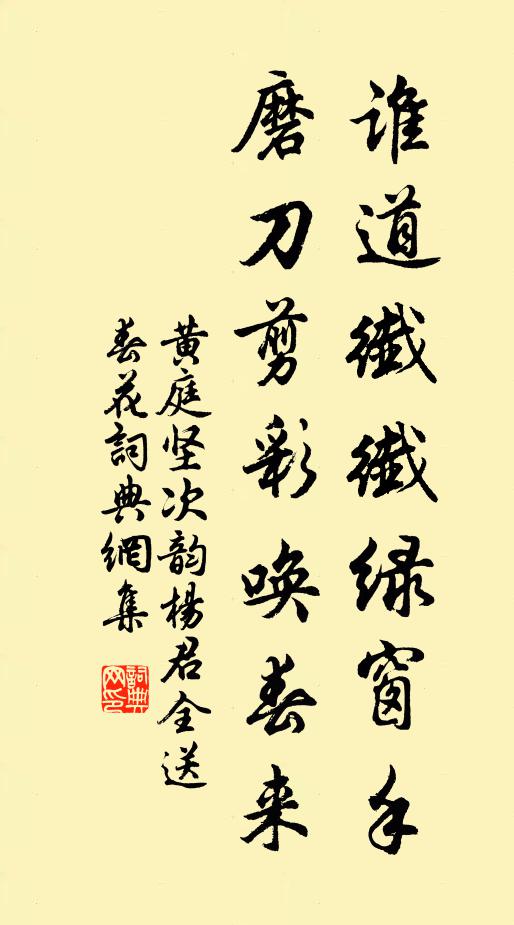 谁道纤纤绿窗手
磨刀剪彩唤春来
黄庭坚次韵杨君全送
春花词典网集
词典网印